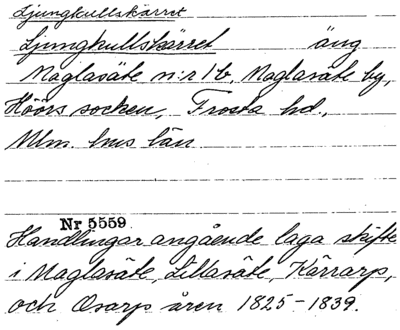 Ljungkullskärret
Ljungkullskärret äng
Maglasäte n:r 1 b, Maglasäte by,
Höörs socken, Frosta hd.,
Mlm. hus län
Nr 5559
Handlingar angående laga skifte
i Maglasäte, Lillasäte, Kärrarp,
och Osarp åren 1825-1839.